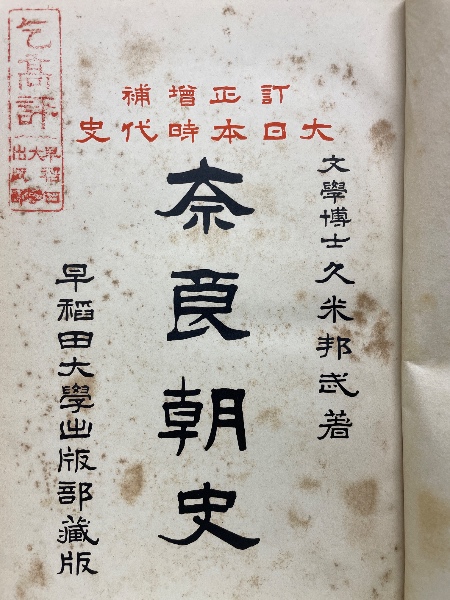 訂正增補
大日本時代史
文學博士久米邦武著
奈良朝史
早稻田大學出版部藏版
乞高評
早稻田
大學
出版部